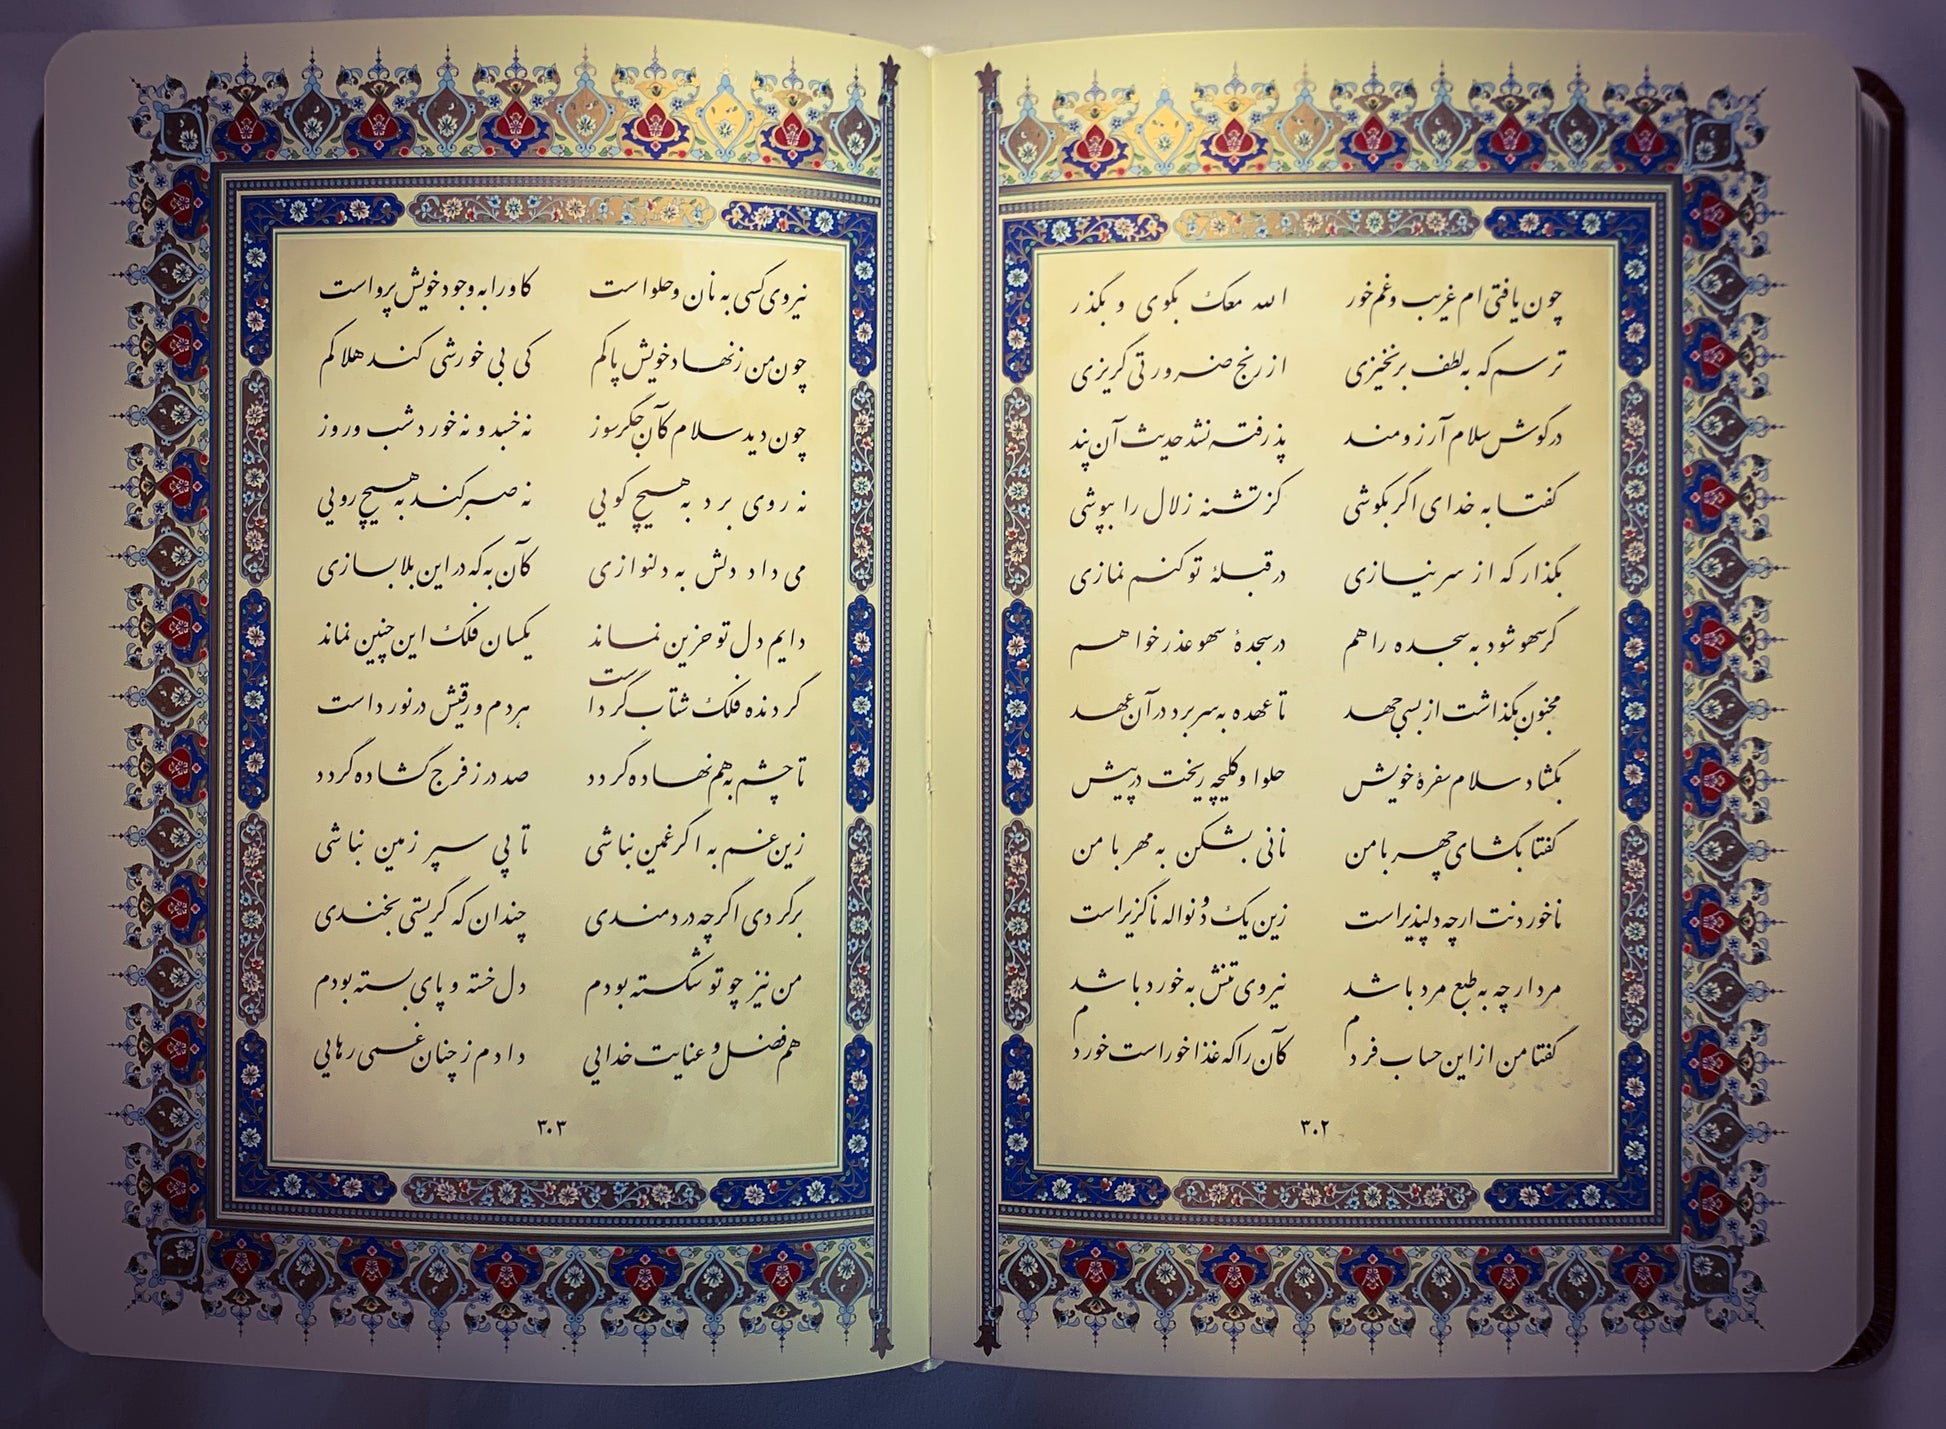 چون یافتی ام غریب و غم خور الله معک بگوی و بگذر
ترسم که به لطف برنخیزی از رنج ضرورتی گریزی
در گوش سلام آرزومند پذرفته نشد حدیث آن پند
گفتا به خدای اگر بکوشی کز تشنه زلال را بپوشی
بگذار که از سر نیازی در قبلهٔ تو کنم نمازی
گر سهو شود به سجده راهم در سجدهٔ سهو عذر خواهم
مجنون بگذاشت از بسی جهد تا عهده به سر برد در آن عهد
بگشاد سلام سفرهٔ خویش حلوا و کلیچه ریخت در پیش
گفتا بگشای چهر با من نانی بشکن به مهر با من
ناخوردنت ارچه دلپذیر است زین یک دو نواله ناگزیر است
مرد ارچه به طبع مرد باشد نیروی تنش به خورد باشد
گفتا من از این حساب فردم کآن را که غذا خور است خوردم
۳۰۲
نیروی کسی به نان و حلوا است کاو را به وجود خویش پروا است
چون من ز نهاد خویش پاکم کی بی خورشی کند هلاکم
چون دید سلام کآن جگرسوز نه خسبد و نه خورد شب و روز
نه روی برد به هیچ کویی نه صبر کند به هیچ رویی
می داد دلش به دلنوازی کآن به که در این بلا بسازی
دایم دل تو حزین نماند یکسان فلک این چنین نماند
گردنده فلک شتاب گرد است هر دم ورقیش در نورد است
تا چشم به هم نهاده گردد صد در ز فرج گشاده گردد
زین غم به اگر غمین نباشی تا پی سپر زمین نباشی
برگردی اگرچه دردمندی چندان که گریستی بخندی
من نیز چو تو شکسته بودم دل خسته و پای بسته بودم
هم فضل و عنایت خدایی دادم ز چنان غمی رهایی
۳۰۳